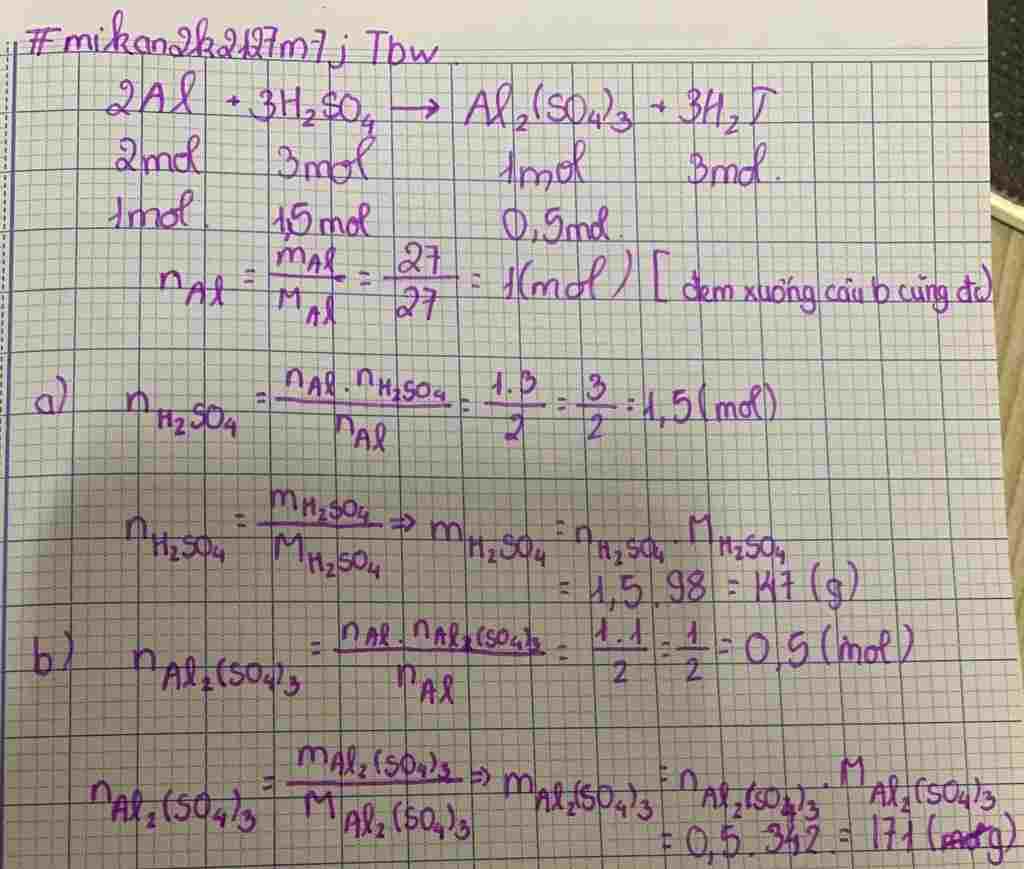 #mikan2k2127m7j Tbw
2Al + 3H₂SO₄ → Al₂(SO₄)₃ + 3H₂↑
2mol 3mol 1mol 3mol.
1mol. 1,5mol 0,5mol.
n_Al = m_Al / M_Al = 27/27 = 1(mol) [đem xuống câu b cũng đc)
a) n_H₂SO₄ = n_Al . n_H₂SO₄ / n_Al = 1.3/2 = 3/2 = 1,5 (mol)
n_H₂SO₄ = m_H₂SO₄ / M_H₂SO₄ ⇒ m_H₂SO₄ = n_H₂SO₄ . M_H₂SO₄
= 1,5 . 98 = 147 (g)
b) n_Al₂(SO₄)₃ = n_Al . n_Al₂(SO₄)₃ / n_Al = 1.1/2 = 1/2 = 0,5 (mol)
n_Al₂(SO₄)₃ = m_Al₂(SO₄)₃ / M_Al₂(SO₄)₃ ⇒ m_Al₂(SO₄)₃ = n_Al₂(SO₄)₃ . M_Al₂(SO₄)₃
= 0,5 . 342 = 171 (g)